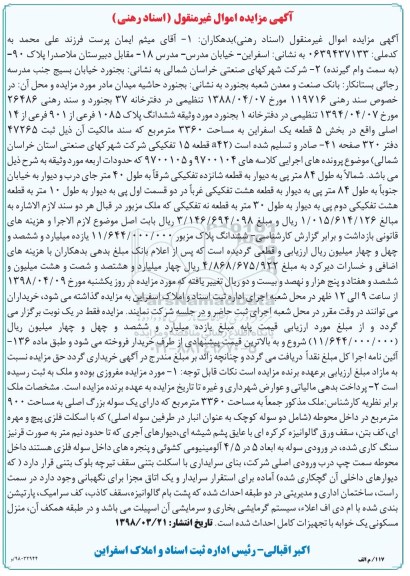 آگهی مزایده اموال غیرمنقول ( اسناد رهنی )
آگهی مزایده اموال غیرمنقول (اسناد رهنی)بدهکاران: ۱- آقای میثم ایمان پرست فرزند علی محمد به
کدملی: ۰۶۳۹۴۳۷۱۳۳ به نشانی: اسفراین- خیابان مدرس- مدرس ۱۸- مقابل دبیرستان ملاصدرا پلاک ۹۰-
(به سمت وام گیرنده) ۲- شرکت شهرکهای صنعتی خراسان شمالی به نشانی: بجنورد خیابان بسیج جنب مدرسه
رجائی بستانکار: بانک صنعت و معدن شعبه بجنورد به نشانی: بجنورد حاشیه میدان مادر مورد مزایده و محل آن: در
خصوص سند رهنی ۱۱۹۷۱۶ مورخ ۱۳۸۸/۰۴/۰۷ تنظیمی در دفترخانه ۳۷ بجنورد و سند رهنی ۲۶۴۸۶
مورخ ۱۳۹۴/۰۴/۰۷ تنظیمی در دفترخانه ۱ بجنورد مورد وثیقه ششدانگ پلاک ۱۰۸۵ فرعی از ۹۰۱ فرعی از ۱۴
اصلی واقع در بخش ۵ قطعه یک اسفراین به مساحت ۳۳۶۰ مترمربع که سند مالکیت آن ذیل ثبت ۴۷۲۶۵
دفتر ۳۲۰ صفحه ۴۱- صادر و تسلیم شده است (۴۲a قطعه ۱۵ تفکیکی شرکت شهرکهای صنعتی استان خراسان
شمالی) موضوع پرونده های اجرایی کلاسه های ۹۷۰۰۱۰۴ و ۹۷۰۰۱۰۵ که حدودات اربعه مورد وثیقه به شرح ذیل
می باشد. شمالاً به طول ۸۴ متر پی به دیوار به قطعه شانزده تفکیکی شرقاً به طول ۴۰ متر جای درب و دیوار به خیابان
جنوباً به طول ۸۴ متر پی به دیوار به قطعه هشت تفکیکی غرباً در دو قسمت اول پی به دیوار به طول ۱۰ متر به قطعه
هشت تفکیکی دوم پی به دیوار به طول ۳۰ متر به قطعه نه تفکیکی که ملک مزبور در قبال هر دو سند لازم الاشاره به
مبالغ ۱/۰۱۵/۶۱۴/۱۲۶ ریال و مبلغ ۳/۱۴۶/۶۹۴/۰۹۸ ریال بابت اصل موضوع لازم الاجرا و هزینه های
قانونی بازداشت و برابر گزارش کارشناسی- ششدانگ پلاک مزبور ۱۱/۶۴۴/۰۰۰/۰۰۰ یازده میلیارد و ششصد و
چهل و چهار میلیون ریال ارزیابی و قطعی گردیده است که پس از اعلام بانک مبلغ بدهی بدهکاران با هزینه های
اضافی و خسارات دیرکرد به مبلغ ۴/۸۶۸/۶۷۵/۹۲۲ ریال چهار میلیارد و هشتصد و شصت و هشت میلیون و
ششصد و هفتاد و پنج هزار و نهصد و بیست و دو ریال تغییر یافته که مورد مزایده در روز یکشنبه مورخ ۱۳۹۸/۰۴/۰۹
از ساعت ۹ الی ۱۲ ظهر در محل شعبه اجرای اداره ثبت اسناد و املاک اسفراین به مزایده گذاشته می شود، خریداران
می توانند در وقت مقرر در محل شعبه اجرای ثبت حاضر و در جلسه شرکت نمایند. مزایده فقط در یک نوبت برگزار می
گردد و از مبلغ مورد ارزیابی قیمت پایه مبلغ یازده میلیارد و ششصد و چهل و چهار میلیون ریال
(۱۱/۶۴۴/۰۰۰/۰۰۰) شروع و به بالاترین قیمت پیشنهادی از طرف خریدار فروخته می شود و طبق ماده ۱۳۶-
آئین نامه اجرا کل مبلغ نقداً دریافت می گردد و چنانچه زائد بر مبلغ مندرج در آگهی خریداری گردد حق مزایده نسبت
به مازاد مبلغ ارزیابی برعهده برنده مزایده است نکات قابل توجه: ۱- مورد مزایده مفروزی بوده و ملک به ثبت رسیده
است ۲- پرداخت بدهی مالیاتی و عوارض شهرداری و غیره تا تاریخ مزایده به عهده برنده مزایده است. مشخصات ملک
برابر نظریه کارشناس:ملک مذکور جمعاً به مساحت ۳۳۶۰ مترمربع که دارای یک سوله بزرگ اصلی به مساحت ۹۰۰
مترمربع در داخل محوطه (شامل دو سوله کوچک به عنوان انبار در طرفین سوله اصلی) که با اسکلت فلزی پیچ و مهره
ای، کف بتن، سقف ورق گالوانیزه کرکره ای با عایق پشم شیشه ای،دیوارهای آجری که تا حدود نیم متر به صورت قرنیز
سنگ کاری شده، در ورودی سوله به ابعاد ۵ در ۴/۵ آلومینیومی کشوئی و پنجره های داخل سوله فلزی هستند داخل
محوطه سمت چپ درب ورودی اصلی شرکت، بنای سرایداری با اسکلت بتنی سقف تیرچه بلوک بتنی قرار دارد ( که
دیوارهای داخلی آن گچکاری شده) آماده برای استقرار سرایدار و یک اتاق مجزا برای نگهبانی وجود دارد در سمت
راست، ساختمان اداری و مدیریتی در دو طبقه احداث شده که پشت بام گالوانیزه،سقف کاذب، کف سرامیک، پارتیشن
بندی شده با ام دی اف اعلا، سیستم گرمایشی بخاری و سرمایشی آن اسپیلت می باشد و در طبقه همکف آن، منزل
مسکونی یک خوابه با تجهیزات کامل احداث شده است. تاریخ انتشار: ۱۳۹۸/۰۳/۲۱
اکبر اقبالی- رئیس اداره ثبت اسناد و املاک اسفراین
۱۱۷/ م الف
۹۸۰۳۲۹۴۴/م